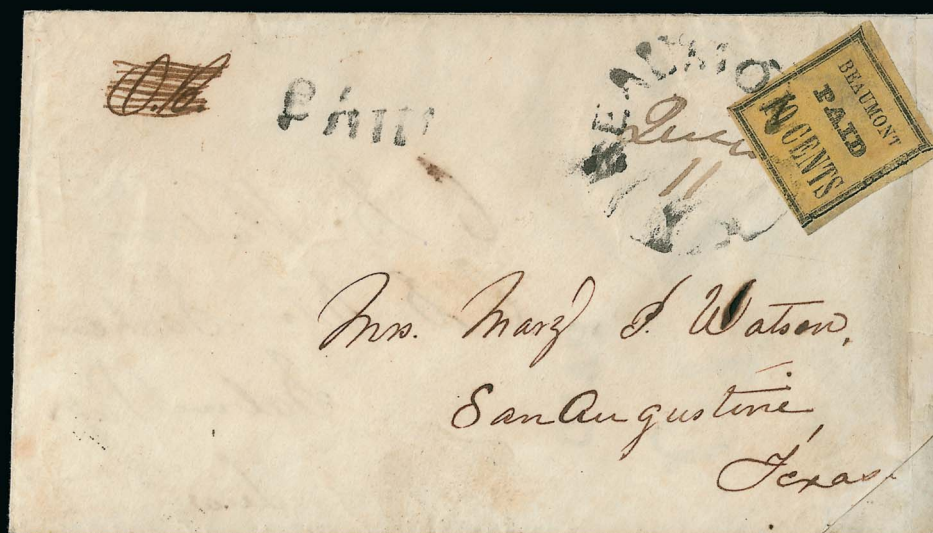 PAID
BEAUMON
11
BEAUMONT
PAID
10 CENTS
Mrs. Mary J. Watson,
San Augustine
Texas